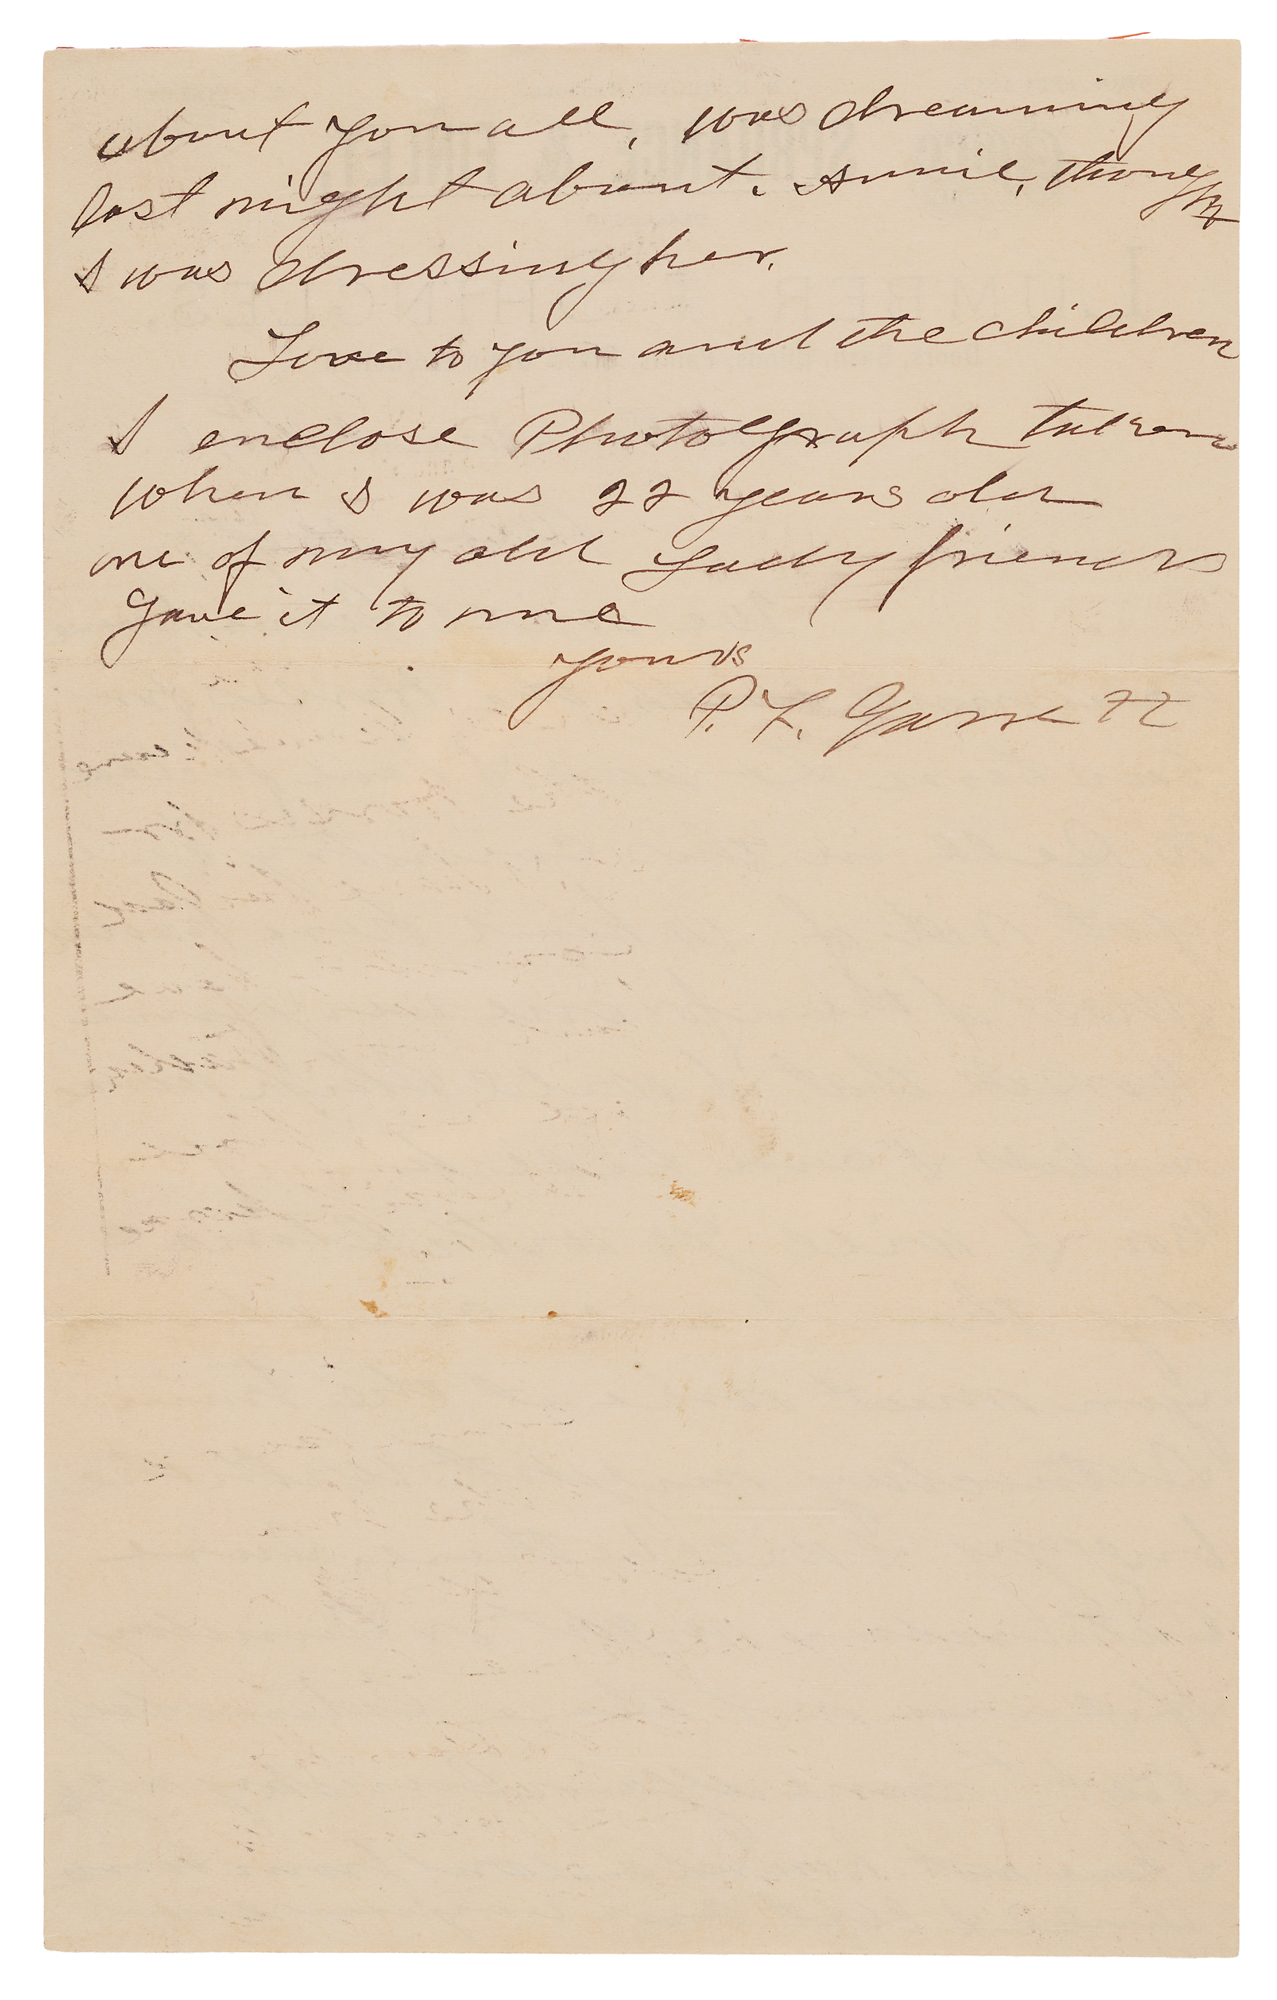 about you all, was dreaming
last night about. Annie, thought
I was dressing her.
Love to you and the children
I enclose Photograph taken
when I was 22 years old
one of my old Lady friends
gave it to me
yours
P. F. Garrett